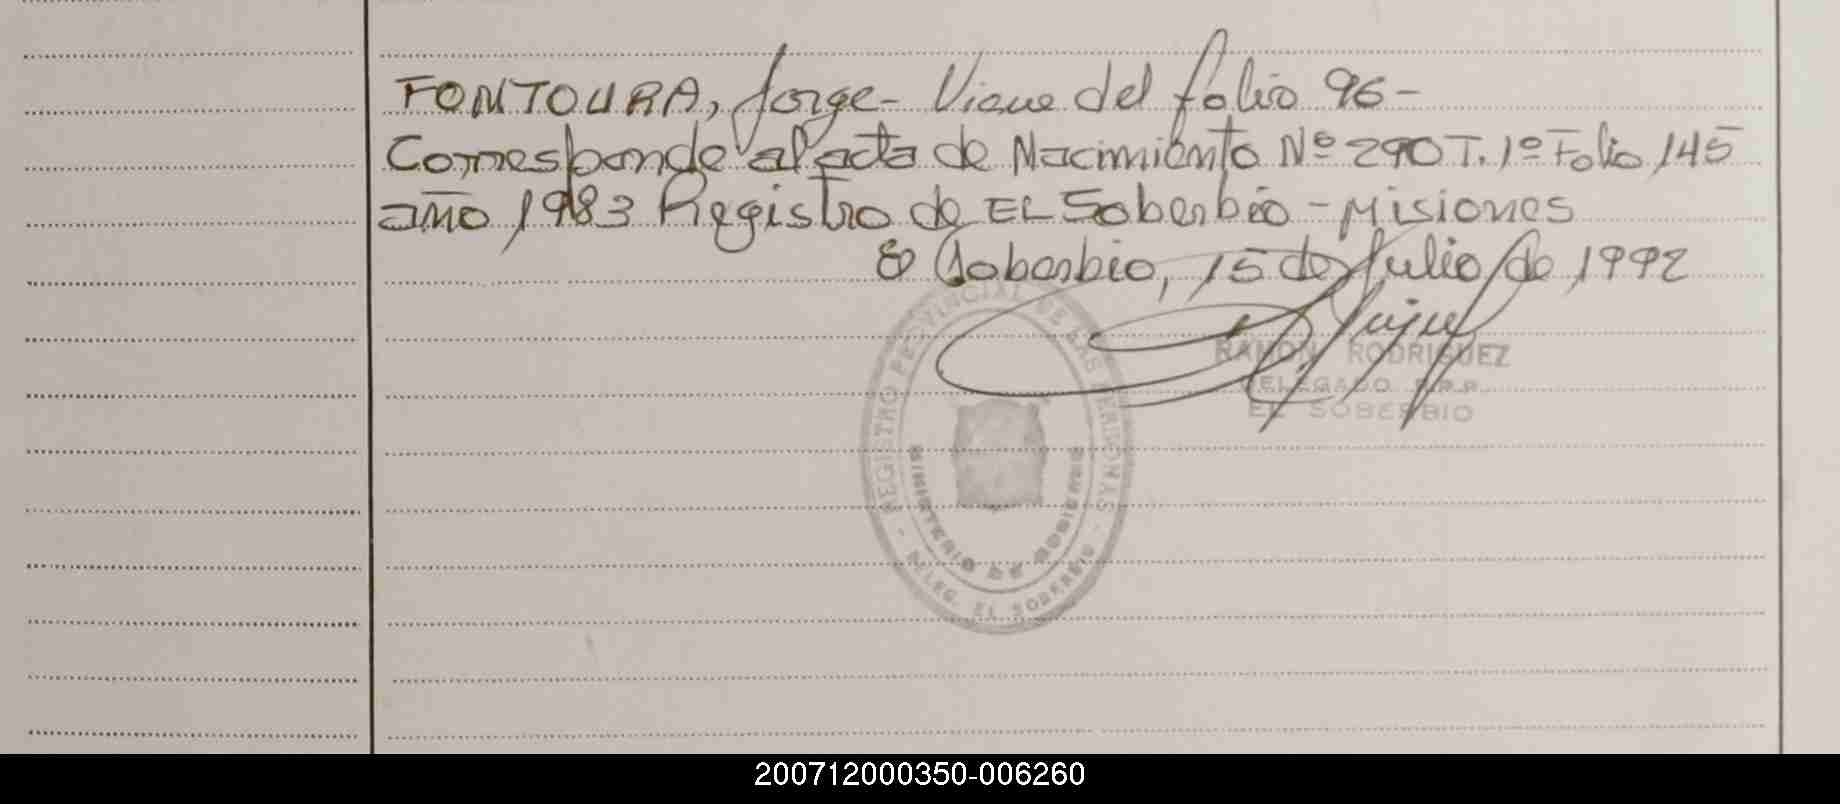 FONTOURA, Jorge - Viene del folio 96 -
Corresponde al acta de Nacimiento Nº 290 T. 1º Folio 145
año 1983 Registro de EL Soberbio - Misiones
El Soberbio, 15 de Julio de 1992
RAMON RODRIGUEZ
DELEGADO R.P.P.
EL SOBERBIO
REGISTRO PROVINCIAL DE LAS PERSONAS
MINISTERIO DE GOBIERNO
- DELEG. EL SOBERBIO -
200712000350-006260